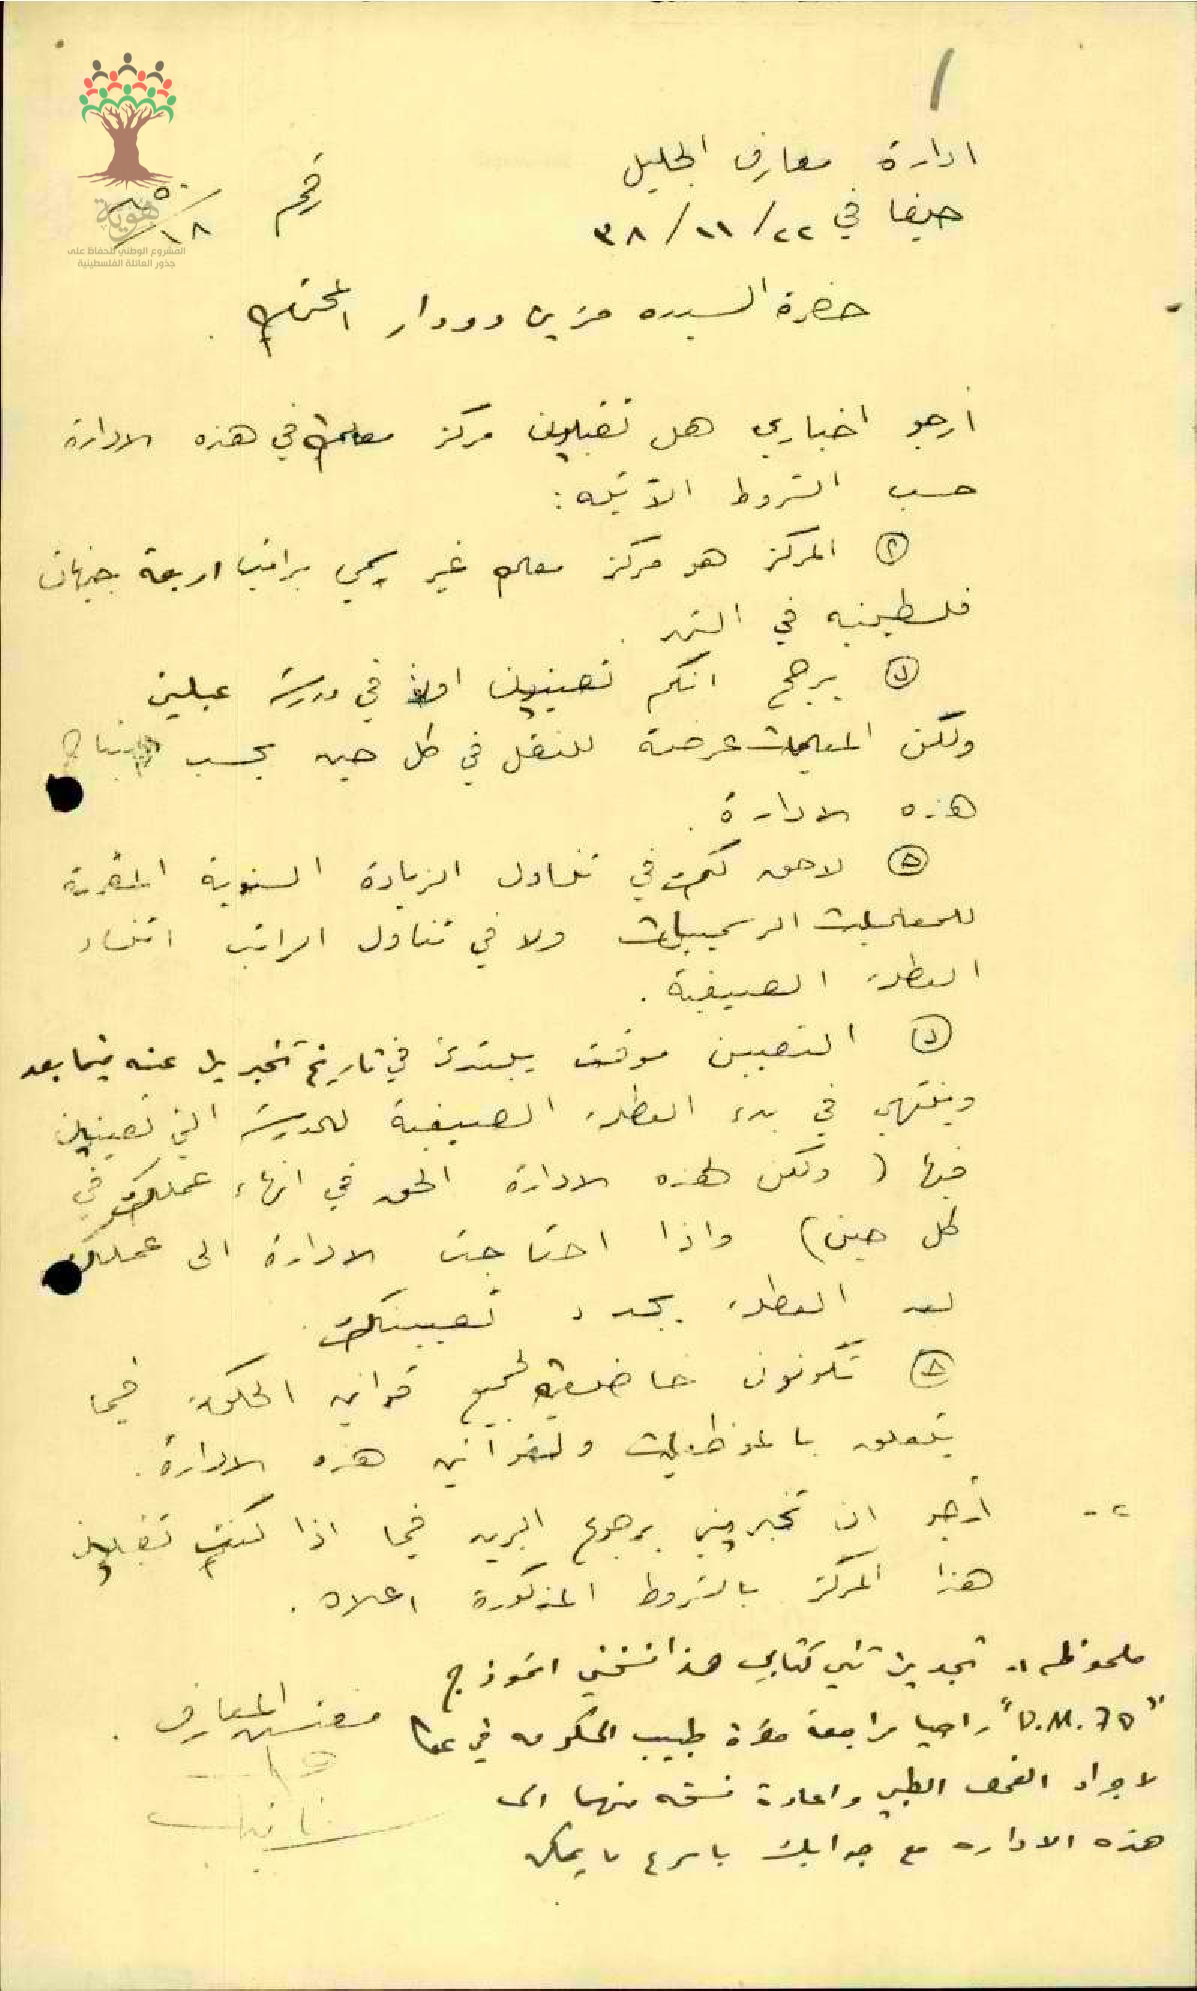 ادارة معارف الجليل
حيفا في ٢٢/١١/٣٨
رقم
هوية
المشروع الوطني للحفاظ على
جذور العائلة الفلسطينية
حضرة السيده مزين دودار المحترمه
أرجو اخباري هل تقبلين مركز معلمة في هذه الادارة
حسب الشروط الآتيه :
المركز هو مركز معلمه غير رسمي براتب اربعة جنيهات
فلسطينيه في الشهر .
(ب) يرجح انكم تعينين اولا في مدرسة عبلين
ولكن المعلمات عرضة للنقل في كل حين بحسب
هذه الادارة .
(ج) لا حق لكم في تناول الزيادة السنوية المقررة
للمعلمات الرسميات ولا في تناول الراتب اثناء
العطلة الصيفية .
(د) التعيين موقت يبتدئ في تاريخ تخبرين عنه فيما بعد
وينتهي في بدء العطلة الصيفية للمدرسة التي تعينين
فيها ( ولكن لهذه الادارة الحق في انهاء عملك في
كل حين ) واذا احتاجت الادارة الى عملك
بعد العطلة يجدد تعيينك .
(هـ) تكونون خاضعة لجميع قوانين الحكومة فيما
يتعلق بالموظفات ولقوانين هذه الادارة .
٢ - أرجو ان تخبريني برجوع البريد فيما اذا كنت تقبلين
هذا المركز بالشروط المذكورة اعلاه .
ملحوظه :. تجدين طي كتابي هذا نسختي انموذج
"D.M. 70" راجيا مراجعة حضرة طبيب الحكومه في عكا
لاجراء الفحص الطبي واعادة نسخه منها الى
هذه الاداره مع جوابك باسرع ما يمكن
مفتش المعارف